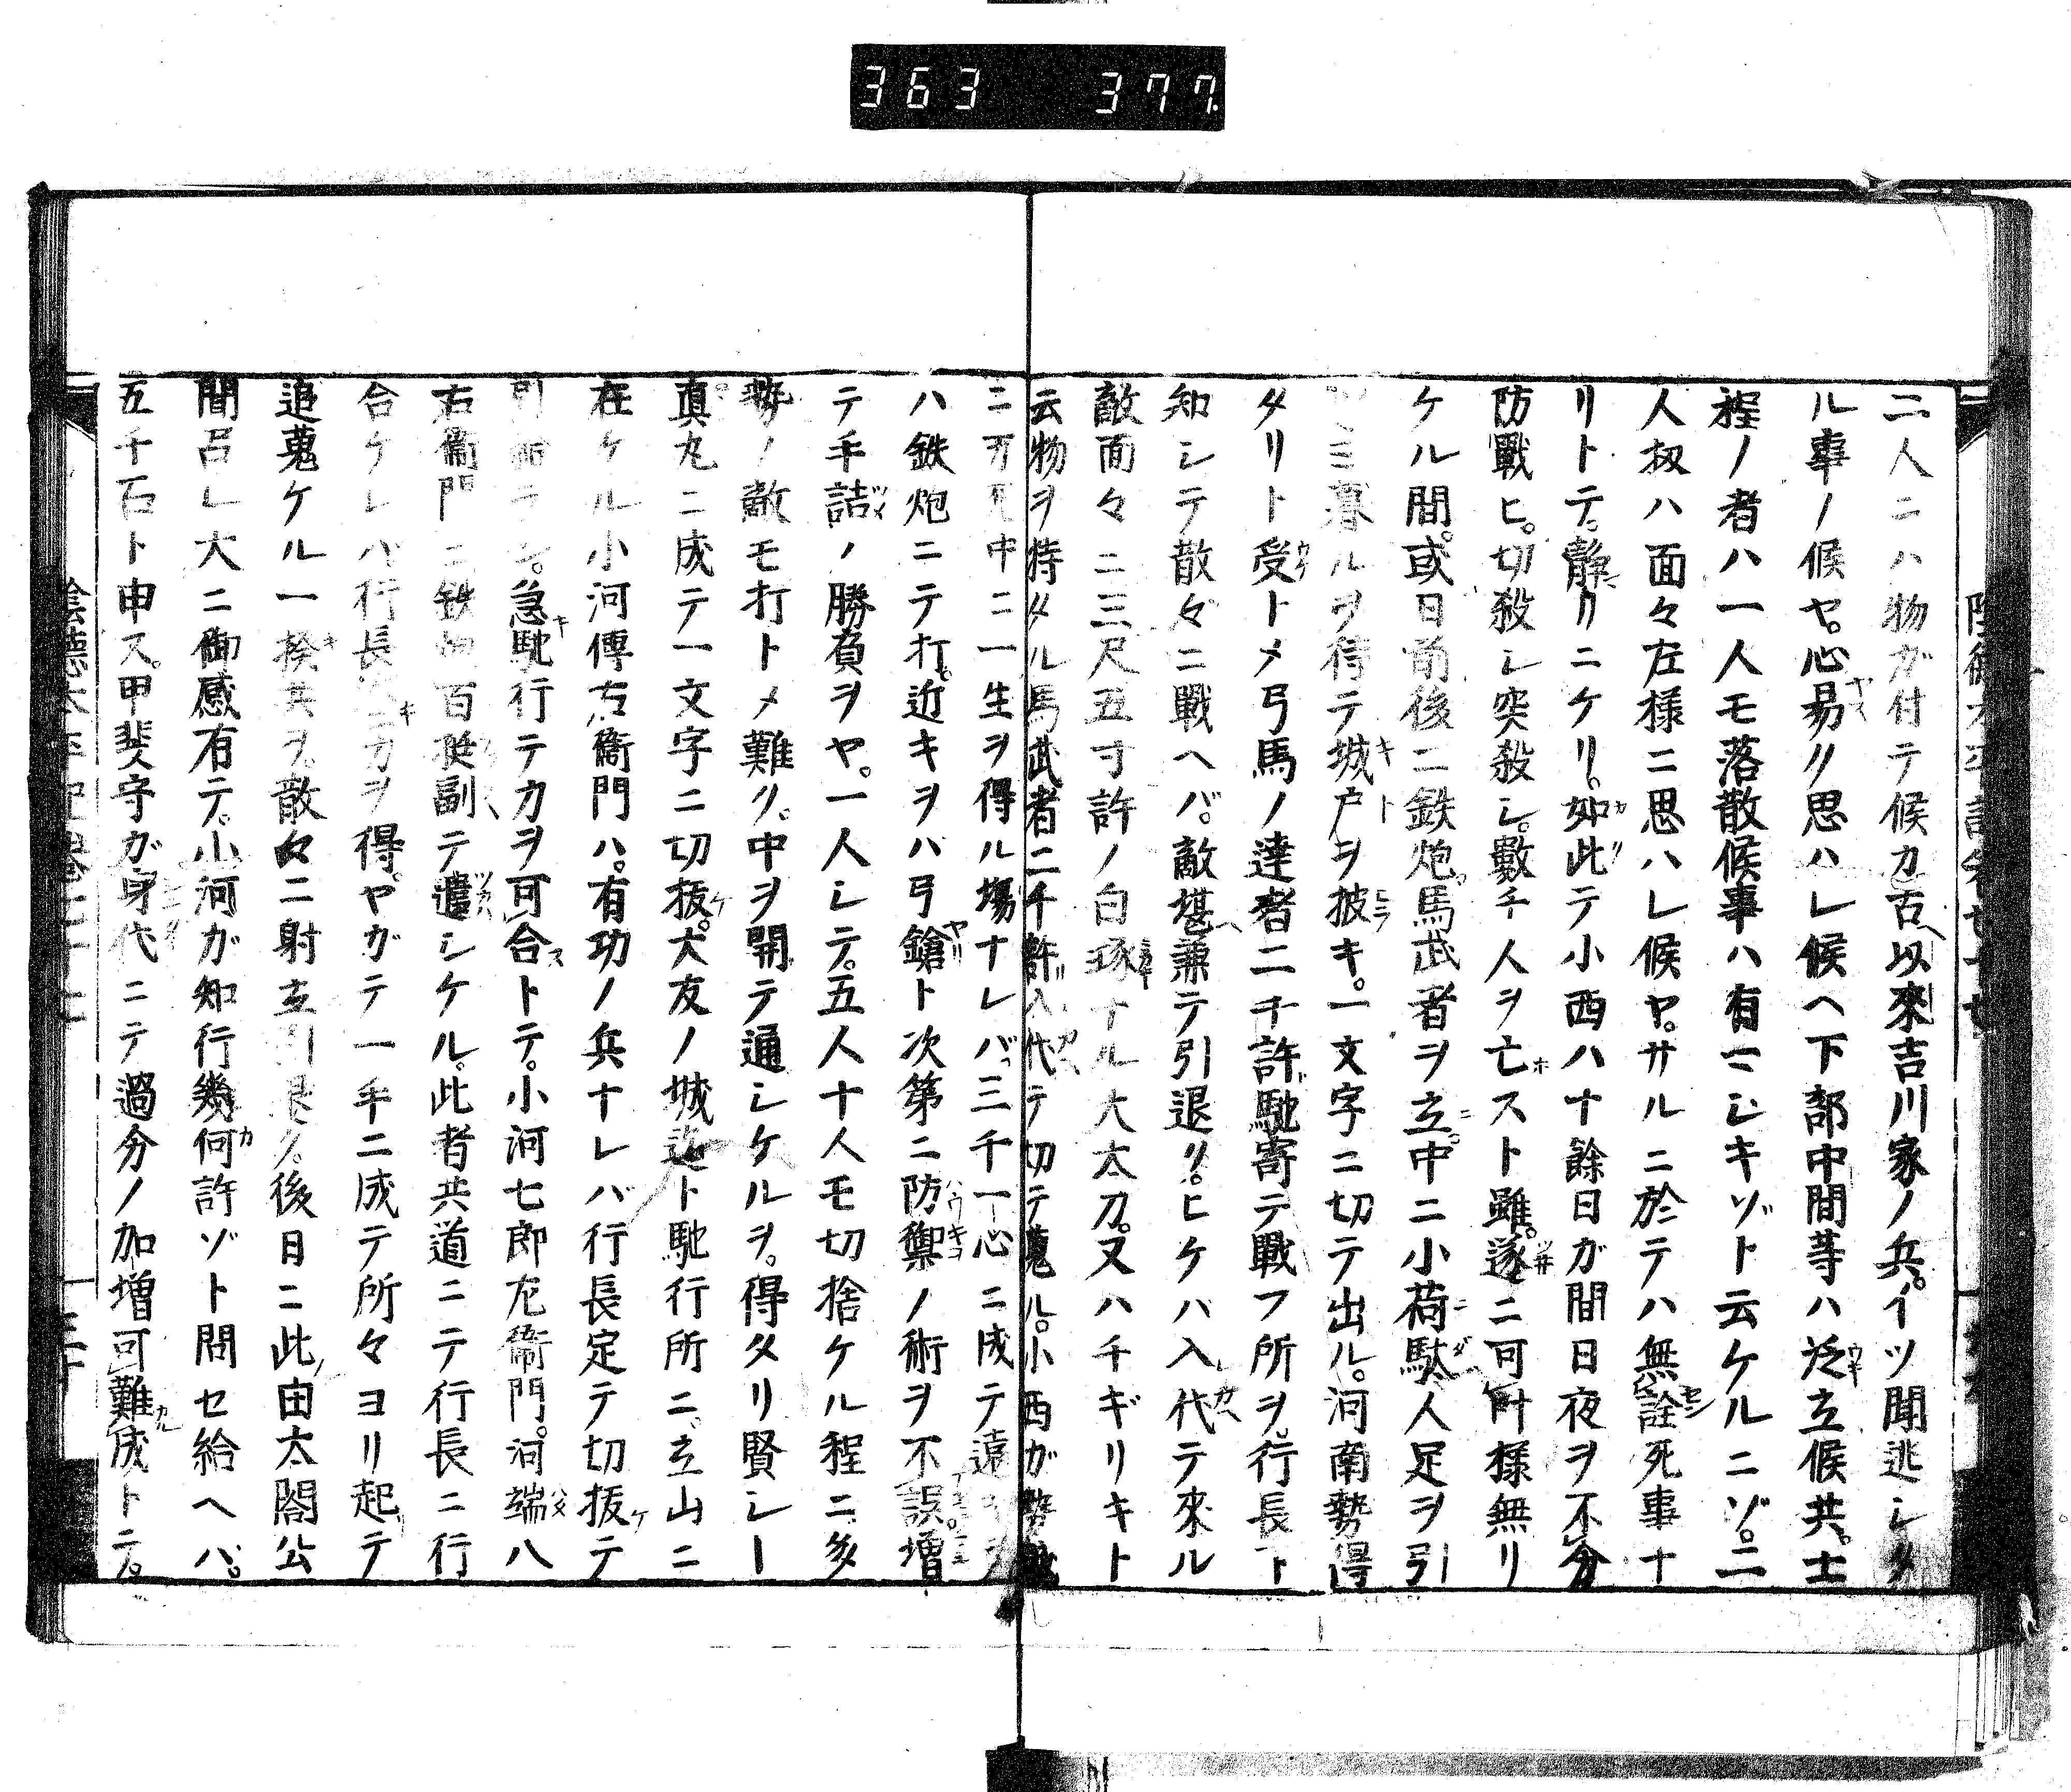 363 377
二人ニハ物ガ付テ候カ古以來吉川家ノ兵。イツ聞迯シタ
ル事ノ候ヤ。心易ク思ハレ候ヘ下部中間等ハ泛立候共。士
程ノ者ハ一人モ落散候事ハ有マシキゾト云ケルニゾ。二
人扨ハ面々左様ニ思ハレ候ヤ。サルニ於テハ無詮死事ナ
リトテ。靜リニケリ。如此テ小西ハ十餘日ガ間日夜ヲ不分
防戰ヒ。切殺シ突殺シ。數千人ヲ亡スト雖。遂ニ可叶様無リ
ケル間。或日前後ニ鉄炮馬武者ヲ立。中ニ小荷駄人足ヲ引
ツヽミ暮ルヲ待テ城戸ヲ披キ。一文字ニ切テ出ル。河南勢得
タリト受トメ弓馬ノ達者二千許馳寄テ戰フ所ヲ。行長下
知シテ散々ニ戰ヘバ。敵堪兼テ引退ク。ヒケハ入代テ來ル
敵面々ニ三尺五寸許ノ白琢ナル大太刀。又ハチギリキト
云物ヲ持タル馬武者二千許入代テ切テ蒐ル。小西ガ勢
ニ万死中ニ一生ヲ得ル塲ナレバ。三千一心ニ成テ遠キヲ
ハ鉄炮ニテ打。近キヲハ弓鎗ト次第ニ防禦ノ術ヲ不誤。増
テ手詰ノ勝負ヲヤ。一人シテ。五人十人モ切捨ケル程ニ。多
勢ノ敵モ打トメ難ク。中ヲ開テ通シケルヲ。得タリ賢シー
真丸ニ成テ一文字ニ切抜。大友ノ城迄ト馳行所ニ。立山ニ
在ケル小河傳右衞門ハ。有功ノ兵ナレバ行長定テ切抜テ
引ラン。急馳行テカヲ可合トテ。小河七郎左衞門。河端八
右衞門ニ鉄炮百挺副テ遣シケル。此者共道ニテ行長ニ行
合ケレバ。行長ニカヲ得。ヤガテ一手ニ成テ所々ヨリ起テ
追蒐ケル一揆共ヲ。散々ニ射立引退ク。後日ニ此由太閤公
聞召レ大ニ御感有テ。小河ガ知行幾何許ゾト問セ給ヘハ。
五千石ト申ス。甲斐守ガ身代ニテ過分ノ加増可難成トテ。
陰徳太平記卷七十七